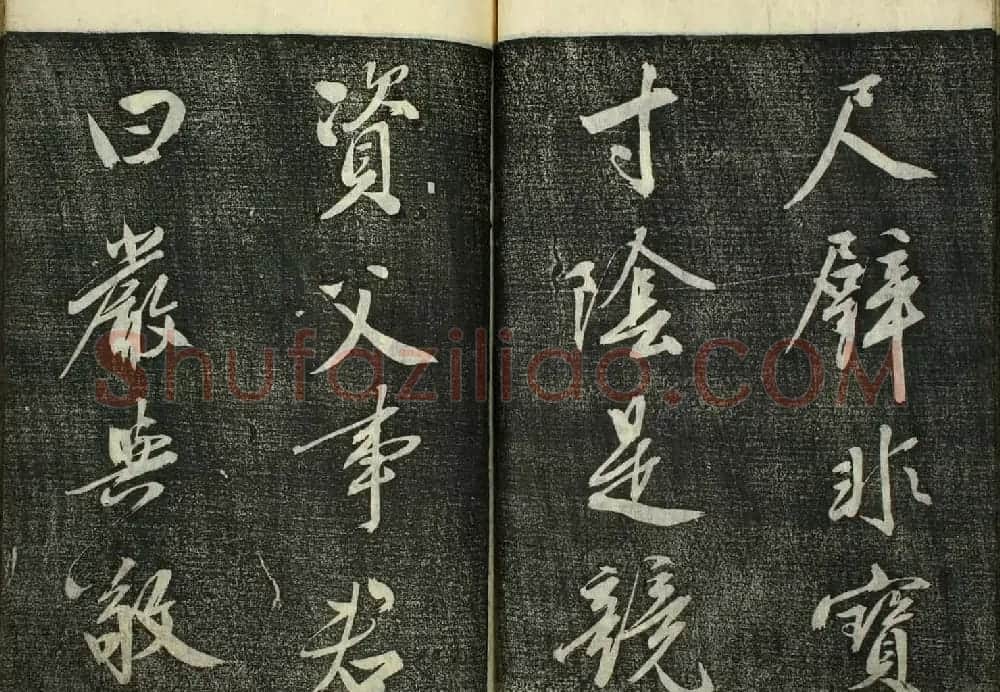 尺璧非寶
寸陰是競
資父事君
曰嚴與敬
Shufaziliao.COM